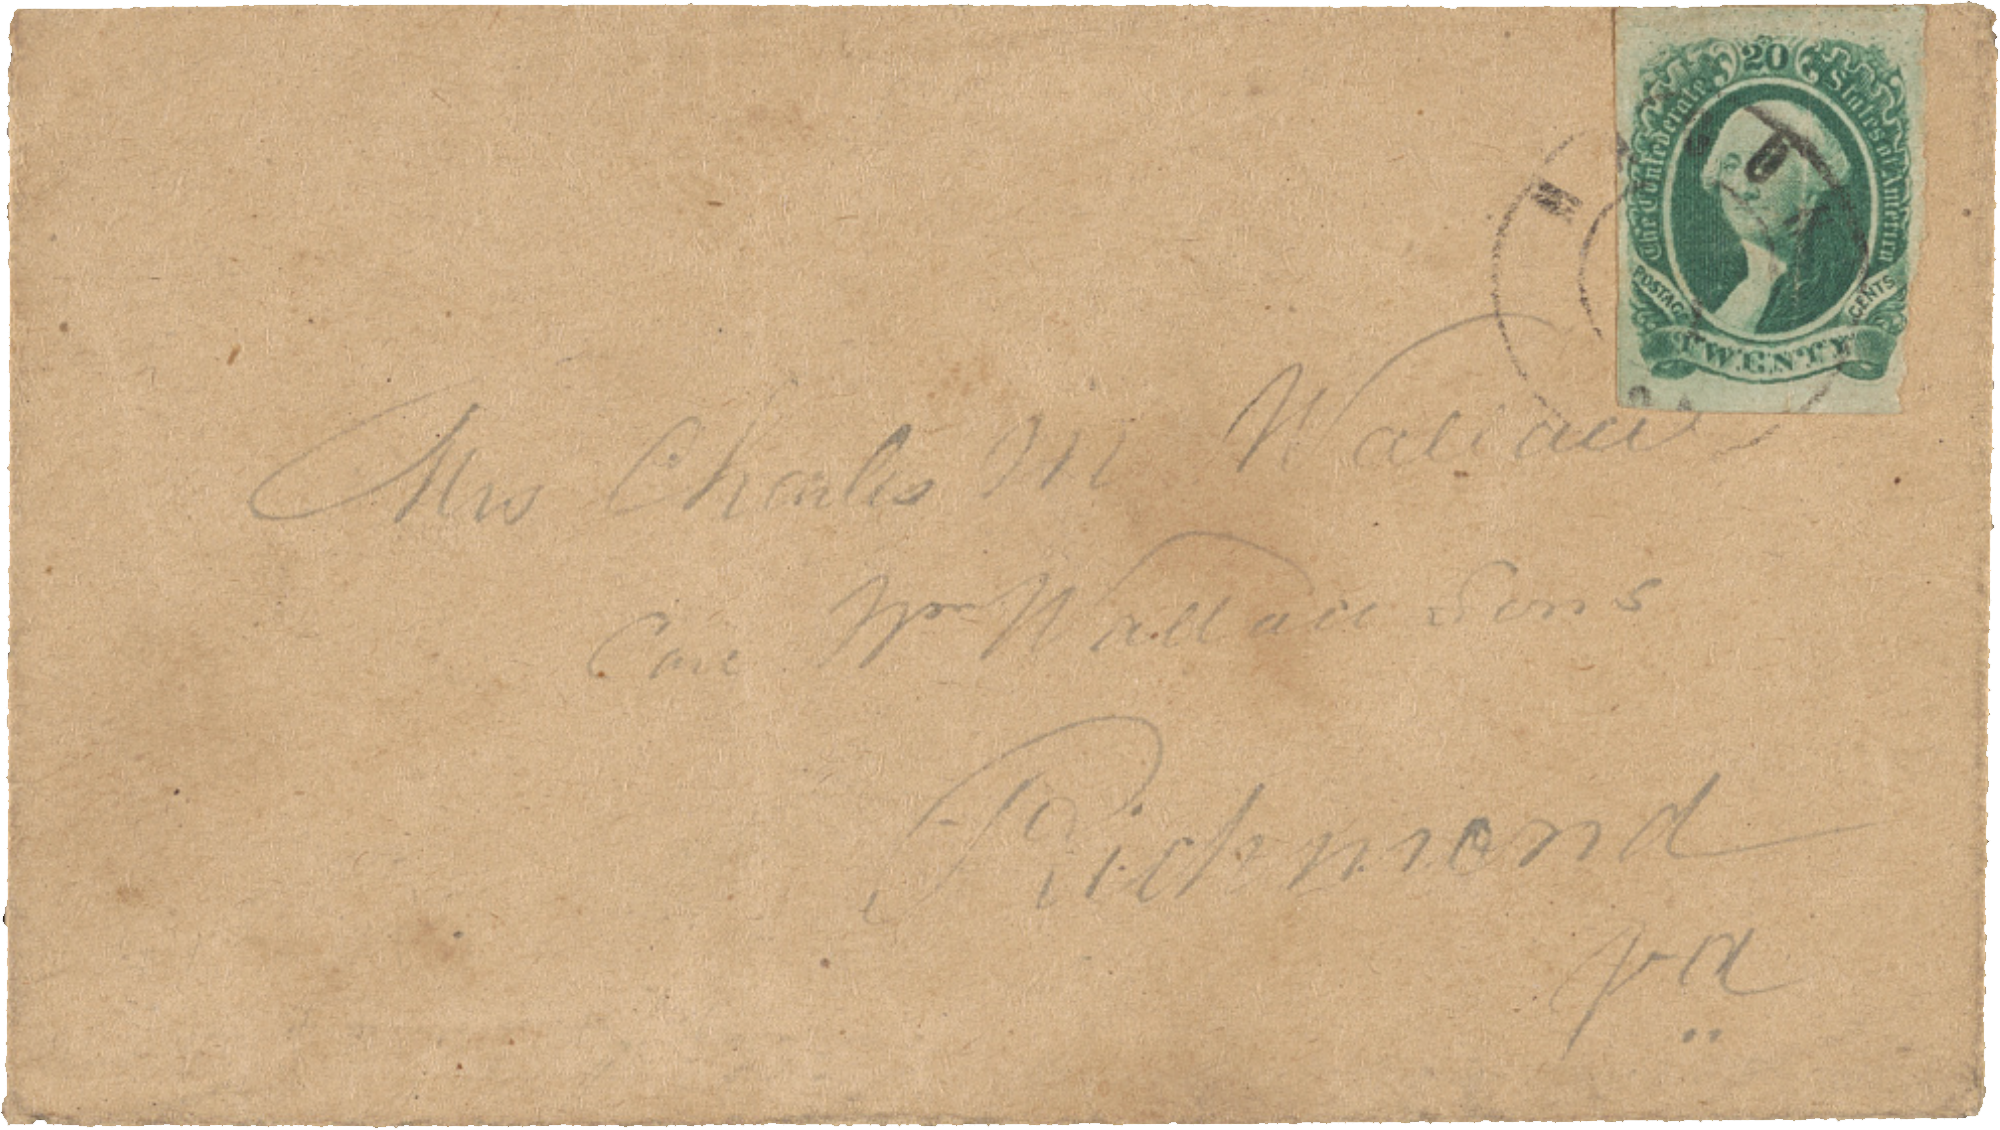 20
The Confederate States of America
POSTAGE CENTS
TWENTY
Mrs Charles M Wallace
Care Wm Wallace Sons
Richmond
Va